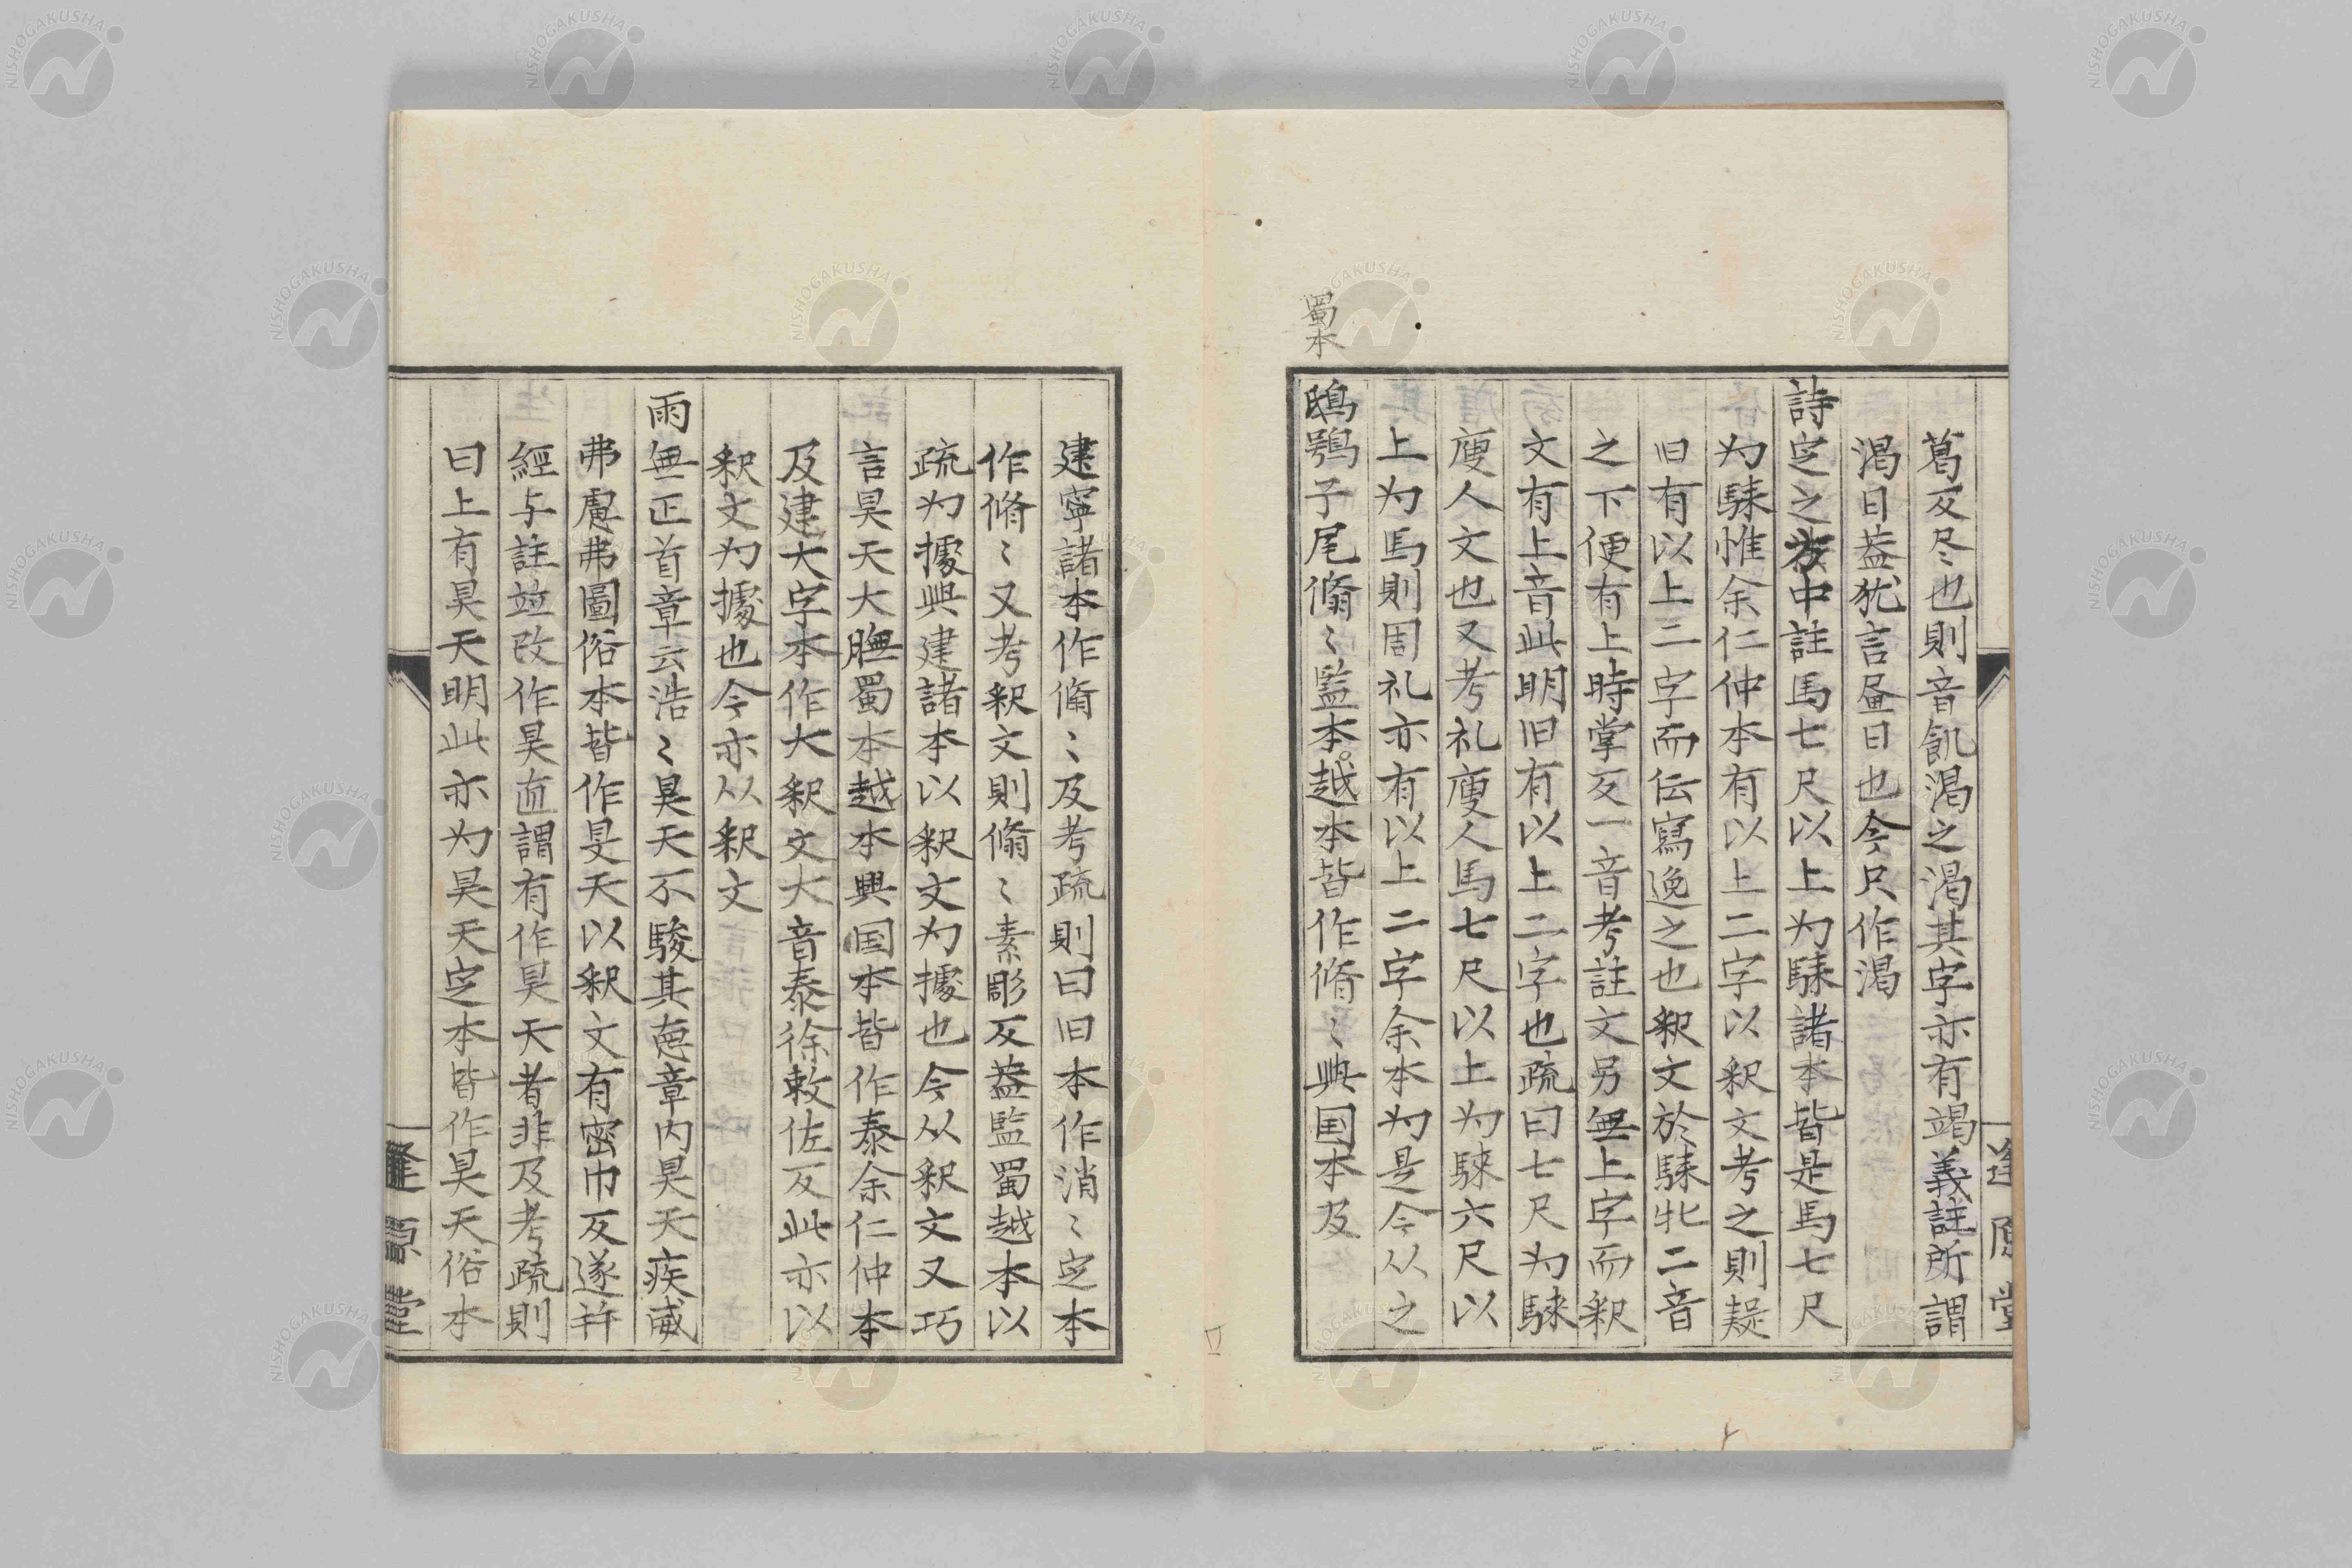 葛反尽也則音飢渇之渇其字亦有竭義註所謂
渇日葢犹言昼日也今只作渇
詩定之方中註馬七尺以上为騋諸本皆是馬七尺
为騋惟余仁仲本有以上二字以釈文考之則疑
旧有以上二字而伝寫逸之也釈文於騋牝二音
之下便有上時掌反一音考註文另無上字而釈
文有上音此明旧有以上二字也疏曰七尺为騋
廋人文也又考礼廋人馬七尺以上为騋六尺以
上为馬則周礼亦有以上二字余本为是今从之
蜀本
鴟鴞予尾翛〻監本。越本皆作脩〻興国本及
建寧諸本作脩〻及考疏則曰旧本作消〻定本
作脩〻又考釈文則翛〻素彫反葢監蜀越本以
疏为據興建諸本以釈文为據也今从釈文又巧
言昊天大膴蜀本越本興国本皆作泰余仁仲本
及建大字本作大釈文大音泰徐敕佐反此亦以
釈文为據也今亦从釈文
雨無正首章云浩〻昊天不駿其徳章内昊天疾威
弗慮弗圖俗本皆作旻天以釈文有密巾反遂并
經与註竝改作昊直謂有作昊天者非及考疏則
曰上有昊天明此亦为昊天定本皆作昊天俗本
逢原堂
逢源堂
NISHOGAKUSHA